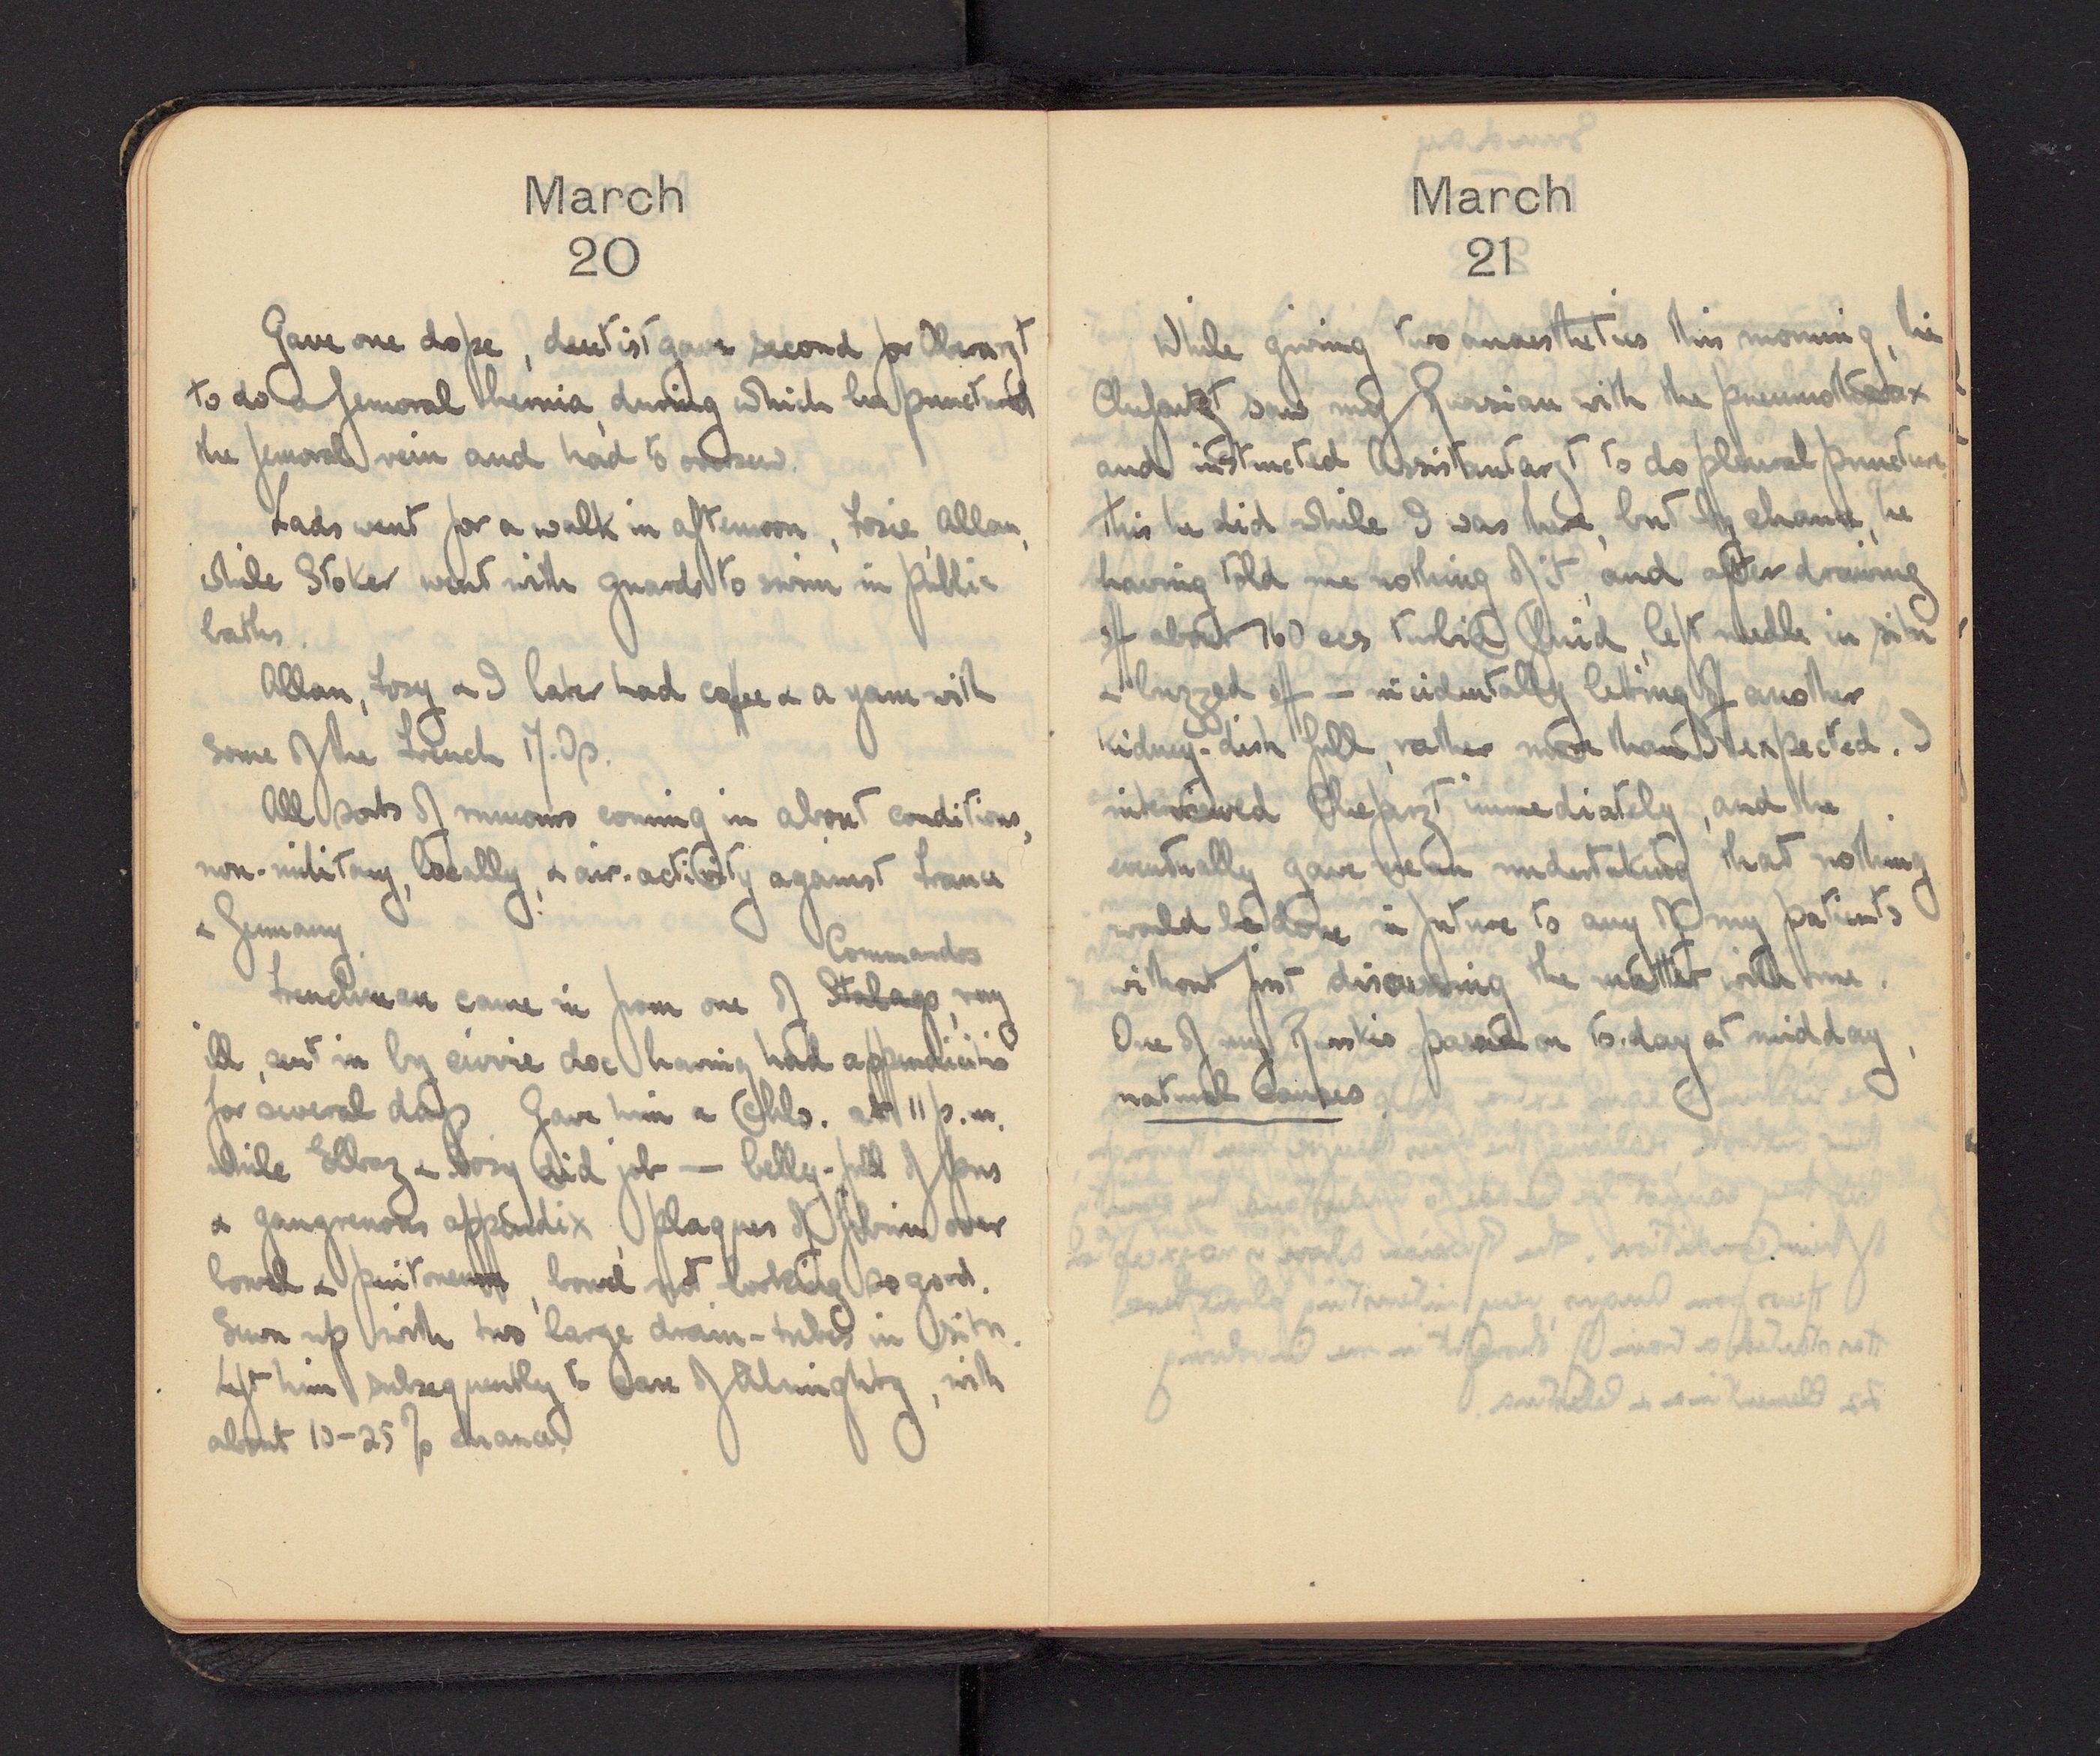 March
20
Gave one dope, dentist gave second for Oberarzt
to do a femoral hernia, during which he punctured
the femoral vein and had to oversew.
Lads went for a walk in afternoon, Foxie, Allan,
while Stoker went with guards to swim in public
baths.
Allan, Foxy & I later had coffee & a yarn with
some of the French M.Os.
All sorts of rumours coming in about conditions,
non-military, locally, & air-activity against France
& Germany.
Commandos
Frenchman came in from one of Stalags, very
ill, sent in by civvie doc having had appendicitis
for several days. Gave him a Chlo. at 11 p.m.
while & Foxy did job — belly-full of pus
& gangrenous appendix, plaques of fibrin over
bowel & peritoneum, bowel not looking so good.
Sewn up with two large drain-tubes in situ.
Left him subsequently to care of Almighty, with
about 10-25% chance.
March
21
While giving two anaesthetics this morning, the
Chefarzt saw my Russian with the pneumothorax
and instructed Assistantarzt to do pleural puncture.
This he did while I was there, but by chance, he
having told me nothing of it, and after drawing
off about 760 ccs turbid fluid, left needle in situ
& buzzed off — incidentally letting off another
kidney-dish full, rather more than I'd expected. I
interviewed Chefarzt immediately, and he
eventually gave me an undertaking that nothing
would be done in future to any of my patients
without first discussing the matter with me.
One of my Ruskis passed on to-day at midday,
natural causes.